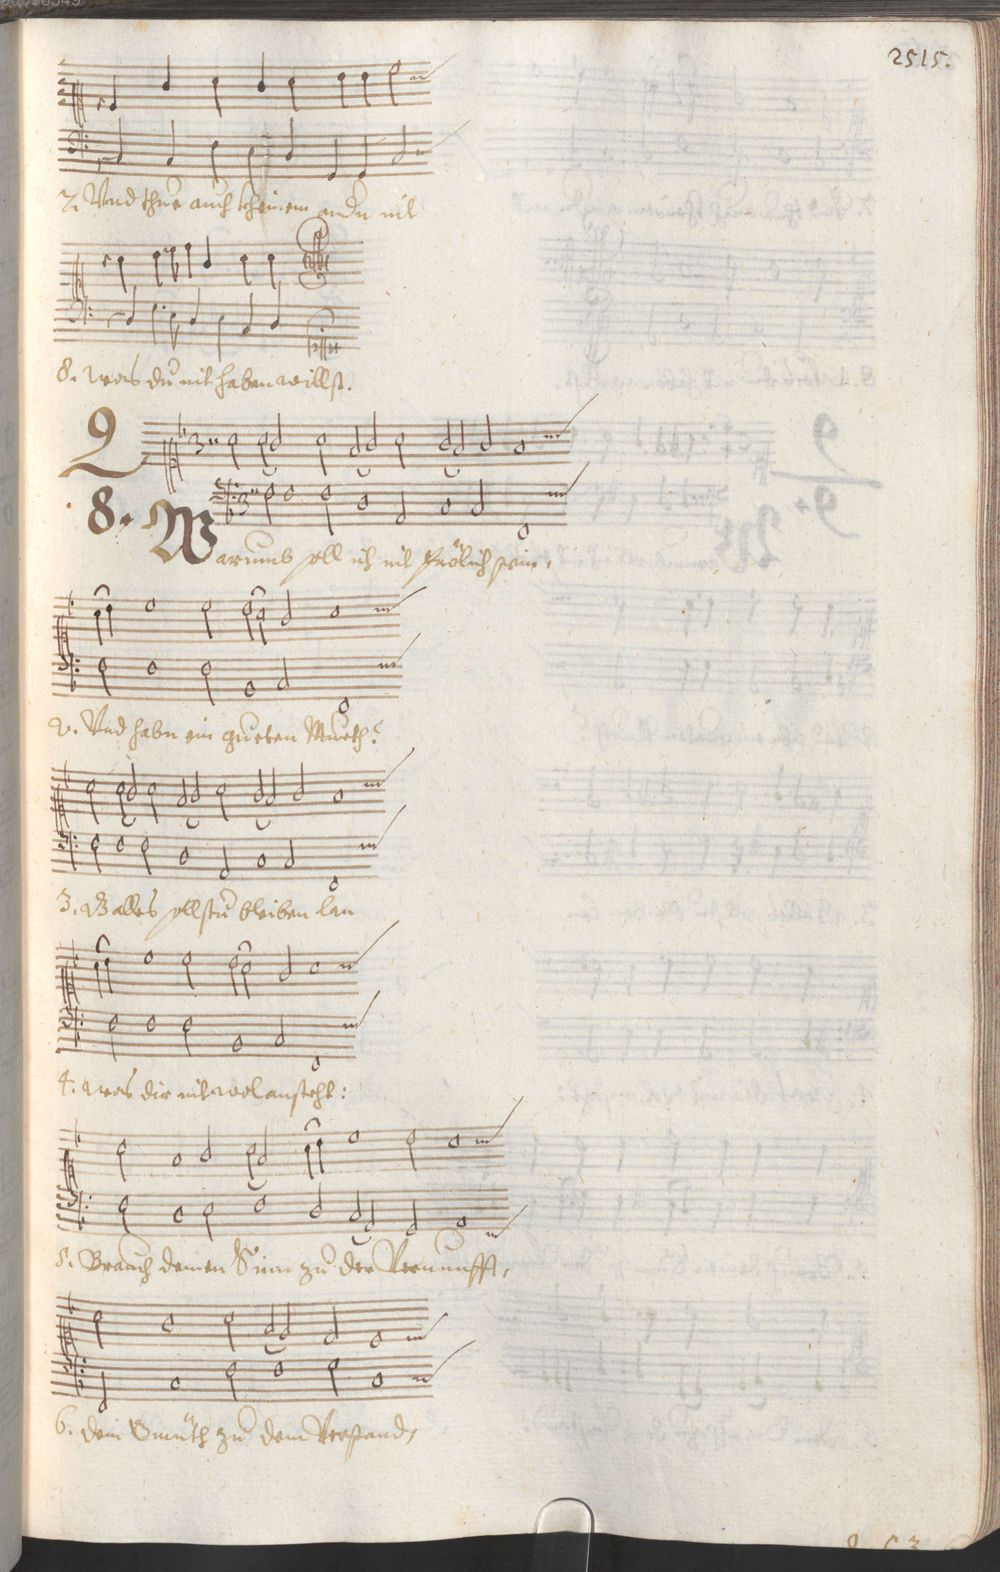 2515.
7. Und thue auch keinem andn nit
8. was du nit haben willst.
9
8. Warumb soll ich nit frölich sein,
2. Und habn ein gueten Mueth?
3. alles sollstu bleiben lan
4. was dir nit wol ansteht:
5. Brauch deinen Sinn zu der Vernunfft,
6. dein Gmüth zu dem Verstand,